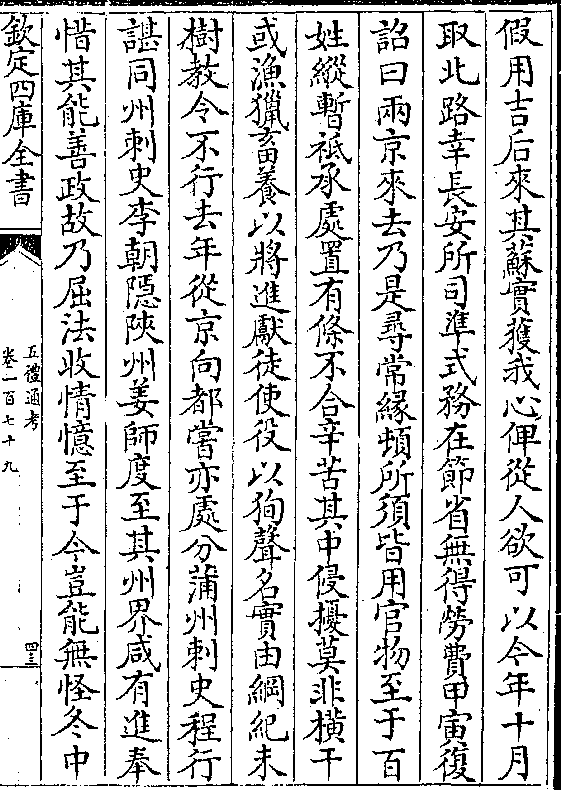 假用吉后來其蘇實獲我心俾從人欲可以今年十月
取北路幸長安所司準式務在節省無得勞費甲寅復
詔曰兩京來去乃是尋常緣頓所須皆用官物至于百
姓縱暫祗承處置有條不合辛苦其中侵擾莫非橫干
或漁獵畜養以將進獻徒使役以狥聲名實由綱紀未
樹教令不行去年從京向都嘗亦處分蒲州刺史程行
諶同州刺史李朝隱陜州姜師度至其州界咸有進奉
惜其能善政故乃屈法收情憶至于今豈能無怪冬中
欽定四庫全書
五禮通考
卷一百七十九
四三